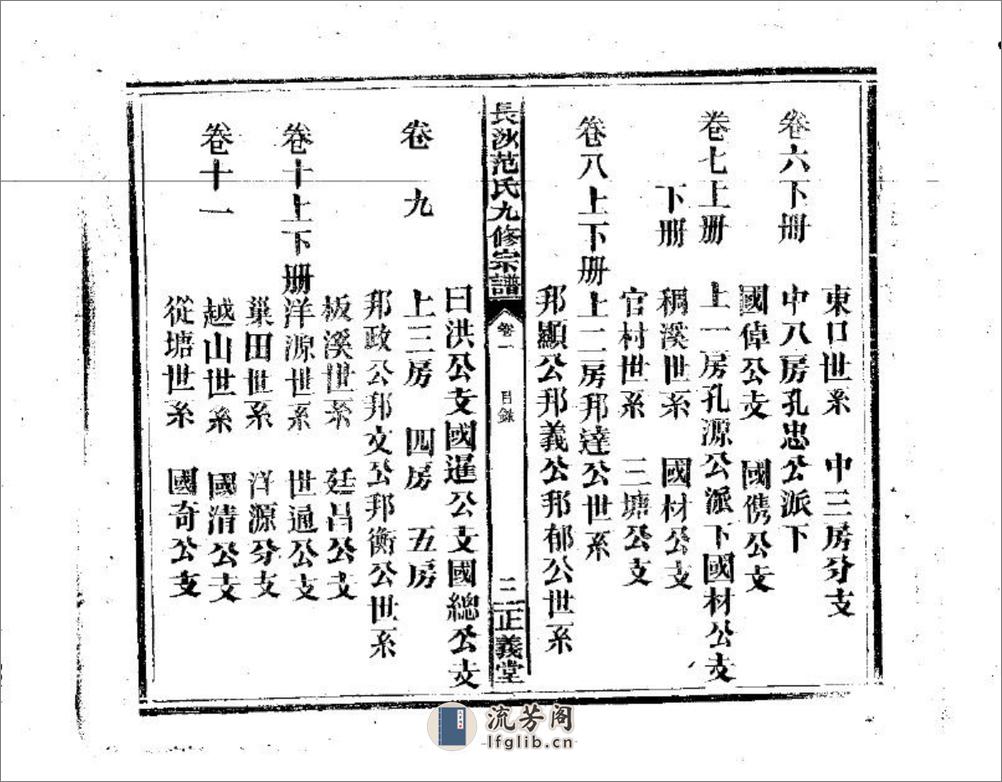 東口世系　中三房分支
卷六下册　中八房孔忠公派下
國倬公支　國儁公支
卷七上册　上一房孔源公派下國材公支
下册　稠溪世系　國材公支
官村世系　三塘公支
卷八上下册　上二房邦達公世系
邦顯公邦義公邦郁公世系
長沙范氏九修宗譜　卷一　目錄　二　正義堂
曰洪公支國暹公支國總公支
卷九　上三房　四房　五房
邦政公邦文公邦衡公世系
板溪世系　廷昌公支
卷十上下册　洋源世系　世通公支
巢田世系　洋源分支
卷十一　越山世系　國清公支
從塘世系　國奇公支
流芳阁
lfglib.cn